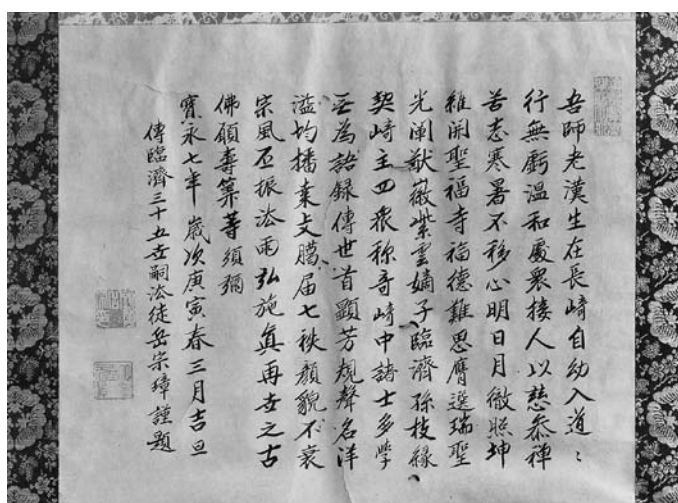 吾師老漢生在長崎自幼入道〻
行無虧溫和處衆接人以慈叅禪
苦志寒暑不移心明日月徹照坤
維開聖福寺福德難思膺選瑞聖
光闡猷徽紫雲嫡子臨濟孫枝緣
契崎主四衆称奇崎中諸士多學
無為語録傳世首顯芳規聲名洋
溢均播棗文臈届七袟顏貌不衰
宗風丕振法雨弘施真再世之古
佛願壽筭等須彌
寳永七年歲次庚寅春三月吉旦
傳臨濟三十五世嗣法徒岳宗璋謹題